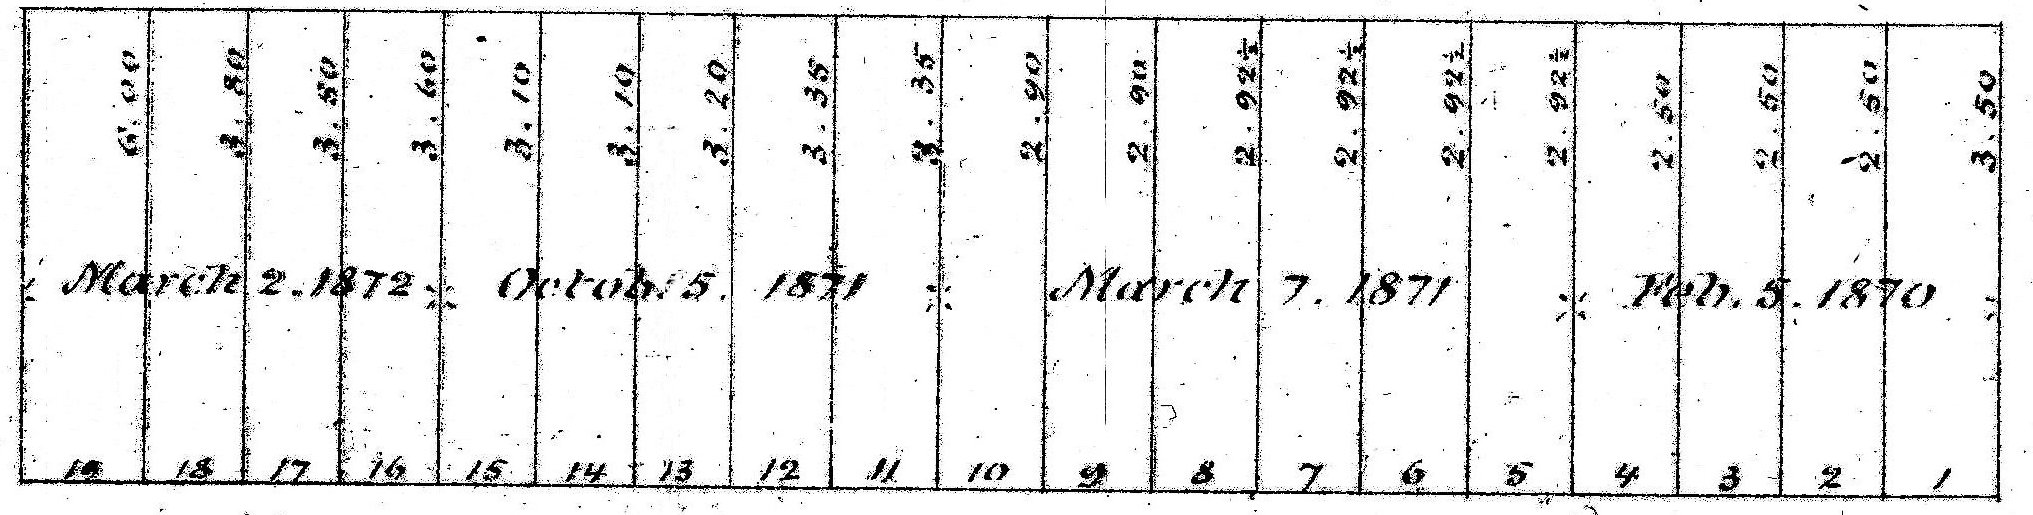 6.00 3.80 3.50 3.60 3.10 3.10 3.20 3.35 3.35 2.90 2.90 2.92½ 2.92½ 2.92½ 2.92½ 2.50 2.50 2.50 3.50
March 2.1872 Octob. 5. 1871 March 7.1871 Feb. 5.1870
19 18 17 16 15 14 13 12 11 10 9 8 7 6 5 4 3 2 1